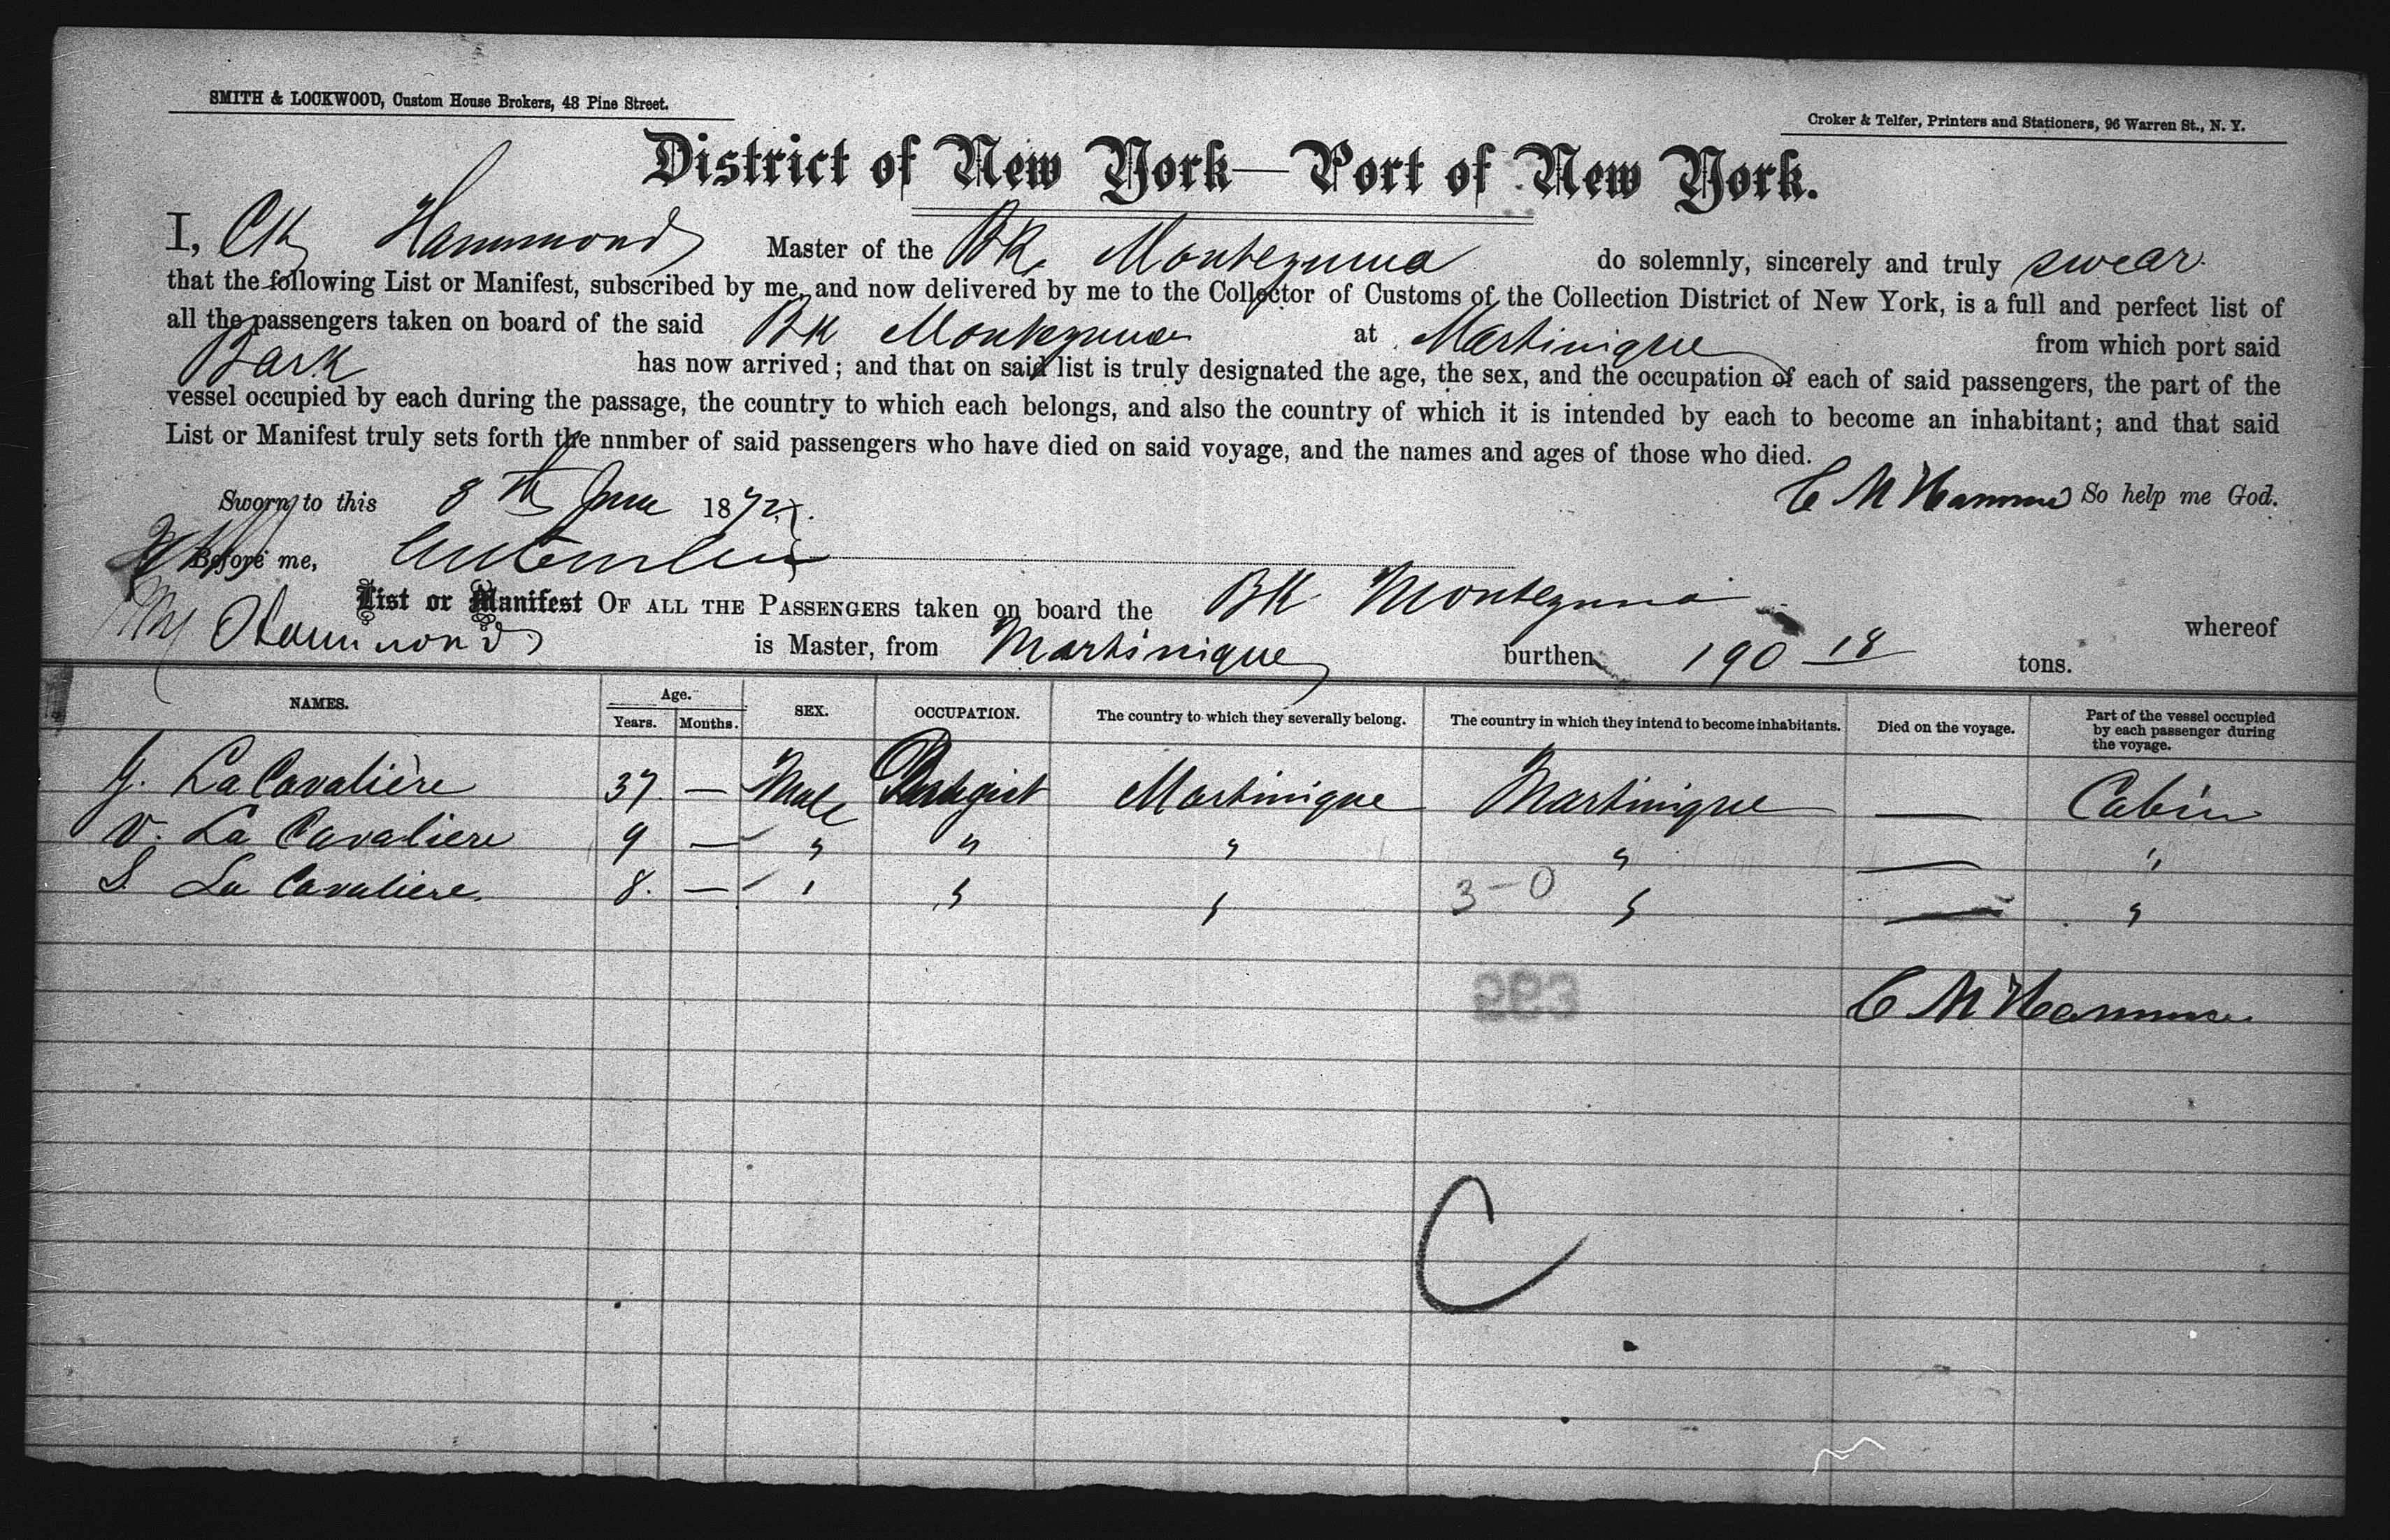 SMITH & LOCKWOOD, Custom House Brokers, 48 Pine Street.
Croker & Telfer, Printers and Stationers, 96 Warren St., N. Y.
District of New York—Port of New York.
I, Hammond Master of the Bk. Montezuma do solemnly, sincerely and truly swear
that the following List or Manifest, subscribed by me, and now delivered by me to the Collector of Customs of the Collection District of New York, is a full and perfect list of
all the passengers taken on board of the said Bk Montezuma at Martinique from which port said
Bark has now arrived; and that on said list is truly designated the age, the sex, and the occupation of each of said passengers, the part of the
vessel occupied by each during the passage, the country to which each belongs, and also the country of which it is intended by each to become an inhabitant; and that said
List or Manifest truly sets forth the nnmber of said passengers who have died on said voyage, and the names and ages of those who died.
Sworn to this 8th June 1872. C M Hammond So help me God.
Before me,
List or Manifest OF ALL THE PASSENGERS taken on board the Bk Montezuma whereof
Hammond is Master, from Martinique burthen 190 18 tons.
NAMES. Age. Years. Months. SEX. OCCUPATION. The country to which they severally belong. The country in which they intend to become inhabitants. Died on the voyage. Part of the vessel occupied by each passenger during the voyage.
G. La Cavalière 37. — Male Martinique Martinique — Cabin
V. La Cavaliere 9 — " " " " — "
S. La Cavaliere. 8. — " " " " — "
3-0
C M Hammond
C